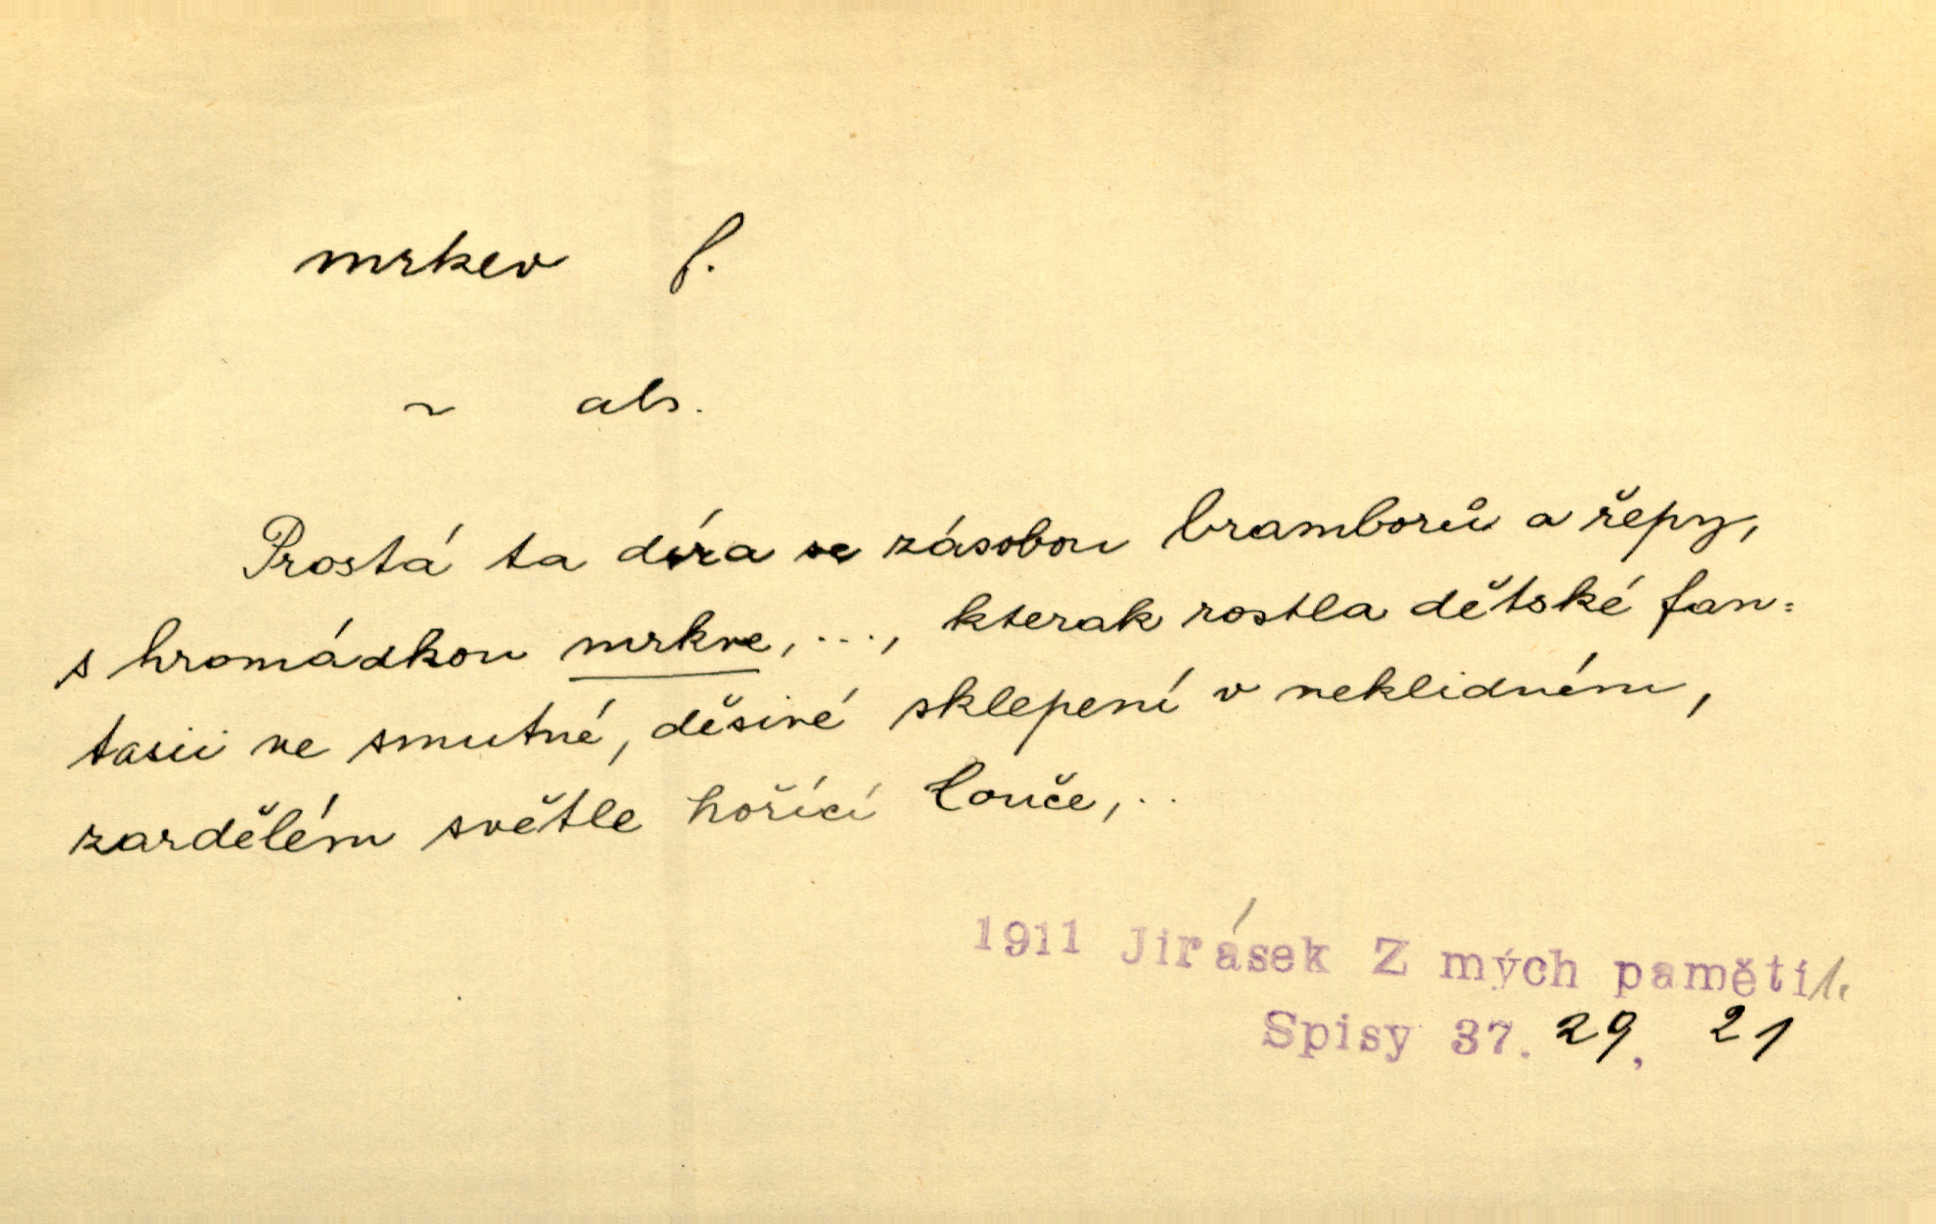 mrkev f.
~ abs.
Prostá ta díra se zásobou bramborů a řepy,
s hromádkou mrkve, ..., kterak rostla dětské fan=
tasii ve smutné, děsivé sklepení v neklidném,
zardělém světle hořící louče, ..
1911 Jirásek Z mých pamětí 1.
Spisy 37. 29, 21